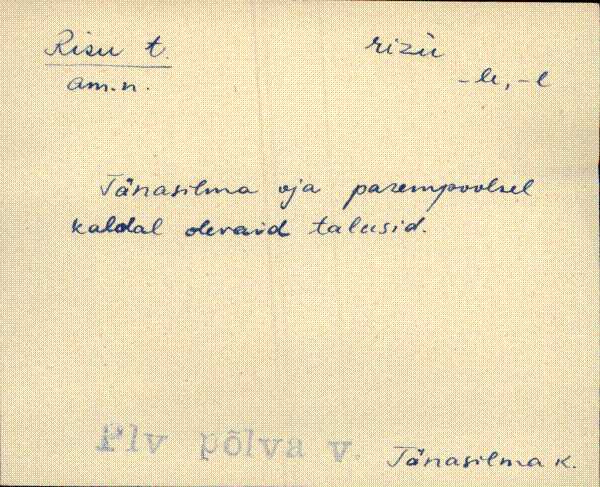 Risu t. rizù
am.n. -le, -l
Tänasilma oja parempoolsel
kaldal olevaid talusid.
Plv põlva v. Tänasilma k.